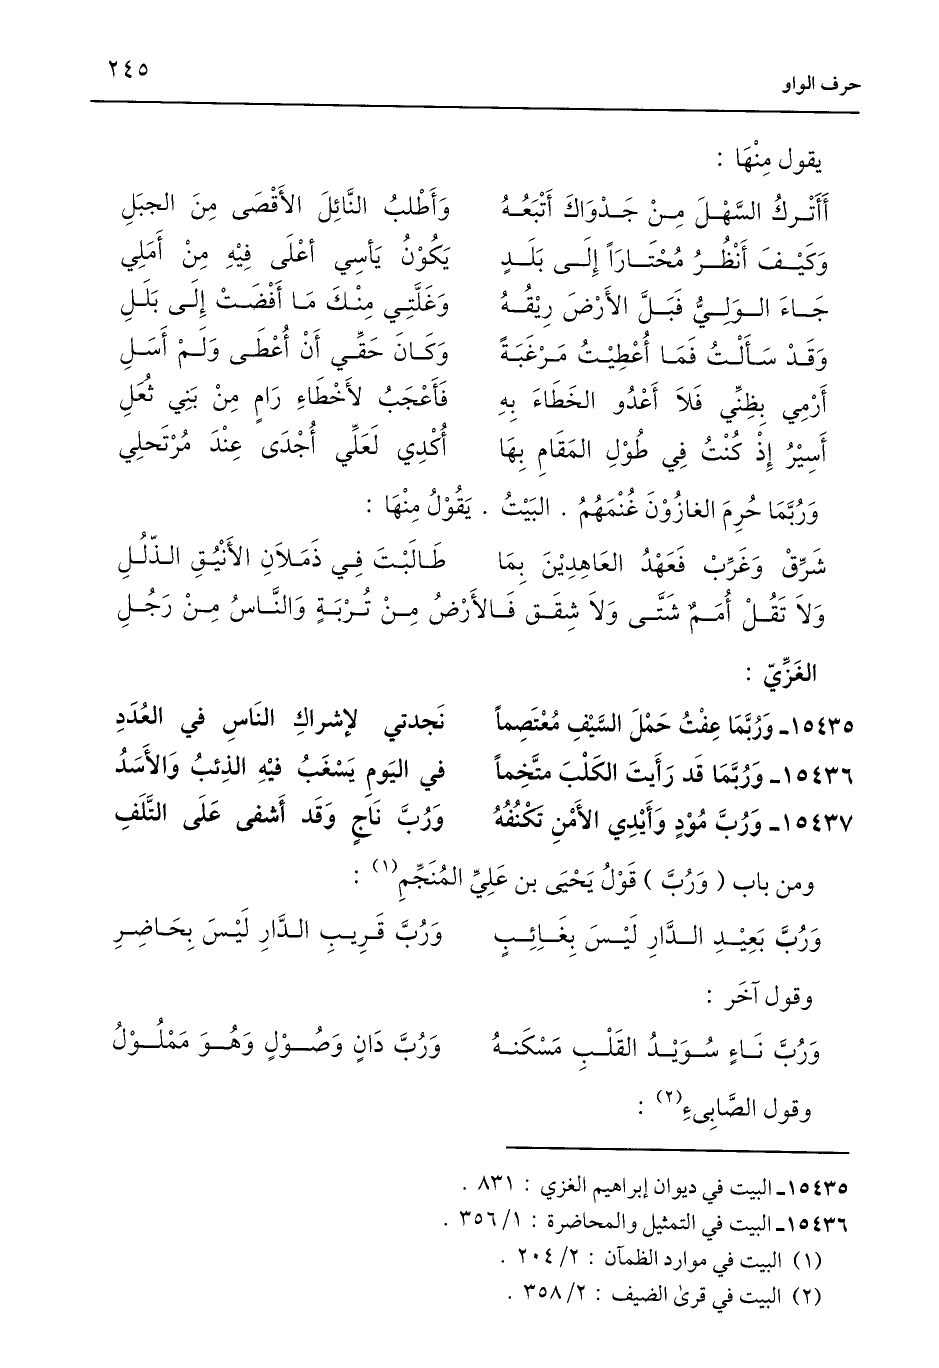 ٢٤٥
حرف الواو
يقول مِنْهَا :
أَأَتْرِكُ السَّهْلَ مِنْ جَدْوَاكَ أَتْبَعُهُ وَأَطْلبُ النَّائِلَ الأَقْصَى مِنَ الجبَلِ
وَكَيْفَ أَنْظُرُ مُخْتَاراً إِلَى بَلَدٍ يَكُوْنُ يَأسِي أعْلَى فِيْهِ مِنْ أَمَلِي
جَاءَ الوَلِيُّ فَبَلَّ الأَرْضَ رِيْقُهُ وَغَلَّتِي مِنْكَ مَا أَفْضَتْ إِلَى بَلَلِ
وَقَدْ سَأَلْتُ فَمَا أُعْطِيْتُ مَرْغَبَةً وَكَانَ حَقِّي أَنْ أُعْطَى وَلَمْ أَسَلِ
أَرْمِي بِظنِّي فَلاَ أَعْدُو الخَطَاءَ بِهِ فَأَعْجَبُ لأَخْطَاءِ رَامٍ مِنْ بَنِي ثُعَلِ
أَسِيْرُ إِذْ كُنْتُ فِي طُوْلِ المَقَامِ بِهَا أُكْدِي لَعَلِّي أُجْدَى عِنْدَ مُرْتَحلِي
وَرُبَّمَا حُرِمَ الغَازُوْنَ غُنْمَهُمُ . البَيْتُ . يَقُوْلُ مِنْهَا :
شَرِّقْ وَغَرِّبْ فَعَهْدُ العَاهِدِيْنَ بِمَا طَالَبْتَ فِي ذَمَلاَنِ الأَنْيُقِ الذّلُلِ
وَلاَ تَقُلْ أُمَمٌ شَتَّى وَلاَ شِقَق فَالأَرْضُ مِنْ تُرْبَةٍ وَالنَّاسُ مِنْ رَجُلِ
الغَزِّيّ :
١٥٤٣٥ـ وَرُبَّمَا عِفْتُ حَمْلَ السَّيْفِ مُعْتَصِماً نَجدتي لإشراكِ النَاسِ في العُدَدِ
١٥٤٣٦ـ وَرُبَّمَا قد رَأيتَ الكَلْبَ متَّخِماً في اليَوم يَسْغَبُ فيْهِ الذئبُ وَالأسَدُ
١٥٤٣٧ـ وَرُبَّ مُوْدٍ وَأَيْدِي الأمْنِ تَكْنُفُهُ وَرُبَّ نَاجٍ وَقَد أَشفى عَلَى التَّلَفِ
ومن باب ( وَرُبَّ ) قَوْلُ يَحْيَى بن عَلِيِّ المُنَجِّمِ(١) :
وَرُبَّ بَعِيْدِ الدَّارِ لَيْسَ بِغَائِبٍ وَرُبَّ قَرِيبِ الدَّارِ لَيْسَ بِحَاضِرِ
وقول آخَر :
وَرُبَّ نَاءٍ سُوَيْدُ القَلْبِ مَسْكَنهُ وَرُبَّ دَانٍ وَصُوْلٍ وَهُوَ مَمْلُوْلُ
وقول الصَّابِىءِ(٢) :
١٥٤٣٥ـ البيت في ديوان إبراهيم الغزي : ٨٣١ .
١٥٤٣٦ـ البيت في التمثيل والمحاضرة : ١/ ٣٥٦ .
(١) البيت في موارد الظمآن : ٢/ ٢٠٤ .
(٢) البيت في قرىٰ الضيف : ٢/ ٣٥٨ .